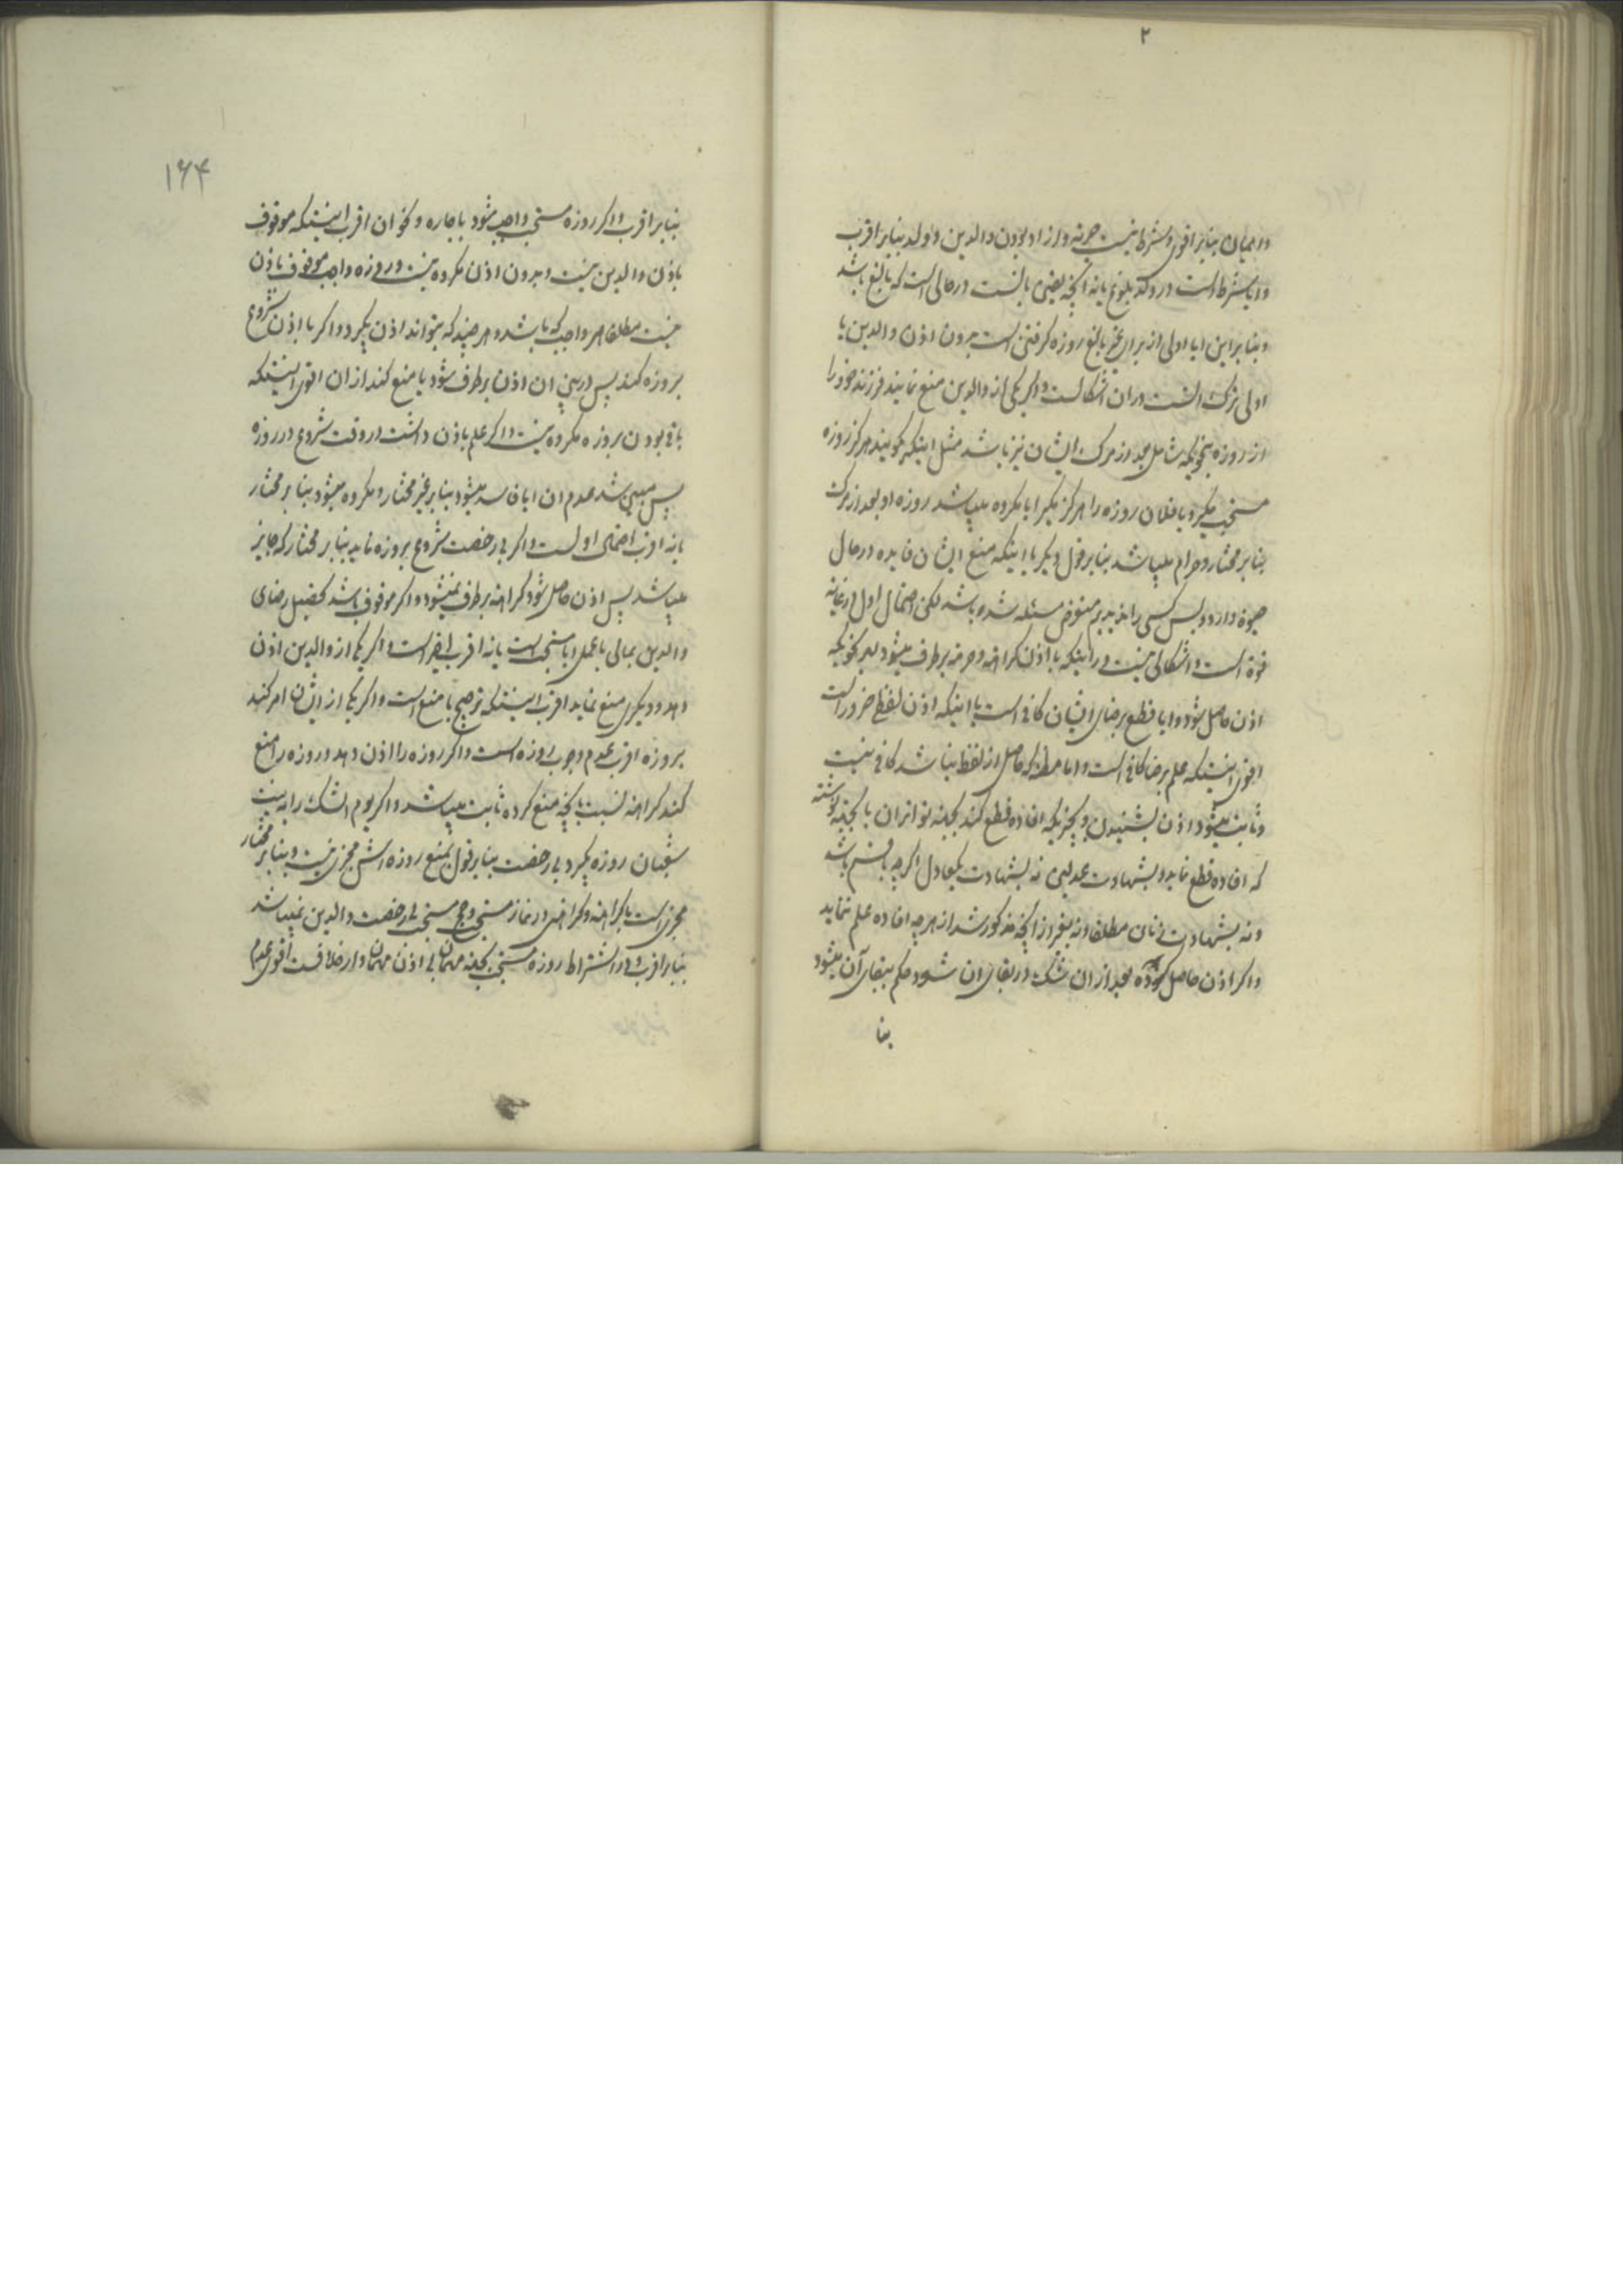 ۲
در میان بنابر اقوی و شرط نیست حریة و ازاد بودن والدین و ولد بنابر اقرب
و ایا شرط است در ولد بلوغ یا نه انچه یقینی بالنست در حالی است که بالغ باشد
و بنابر این ایا اولی از برای غیر بالغ روزه کرفتن است بدون اذن والدین یا
اولی ترک است در ان اشکالست و اکر یکی از والدین منع نمایند فرزند خود را
از روزه بنحویکه شامل بعد از مرک ایشان نیز باشد مثل اینکه کویند هرکز روزه
مستحب مکیر و یا فلان روزه را هرکز مکیر ایا مکروه میباشد روزه او بعد از مرک
بنابر مختار و حرام میباشد بنابر قول دیکر یا اینکه منع ایشان فایده در حال
حیوة دارد و بس کسی را ندیدیم متعرض مسئله شده باشد لکن احتمال اول در غایة
قوة است و اشکالی نیست در اینکه با اذن کراهة و حرمة برطرف میشود بهر نحویکه
اذن حاصل شود و ایا قطع برضای ایشان کافی است یا اینکه اذن لفظی ضرور است
اقوی اینستکه علم برضا کافی است و اما مظنه که حاصل از لفظ نباشد کافی نیست
و ثابت میشود اذن بشنیدن و بچیزیکه افاده قطع کند بجهة تواتر ان یا بجهة نوشته
که افاده قطع نماید و بشهادت عدلین نه بشهادت یکعادل اکرچه با قسم باشد
و نه بشهادت زنان مطلقا و نه بغیر از انچه مذکور شد از هرچه افاده علم ننماید
و اکر اذن حاصل شود و بعد از ان شک در بقای ان شود حکم ببقای آن میشود
بنا
۱۶۴
بنابر اقرب و اکر روزه مستحب واجب شود باجاره و نحو ان اقرب اینستکه موقوف
باذن والدین نیست و بدون اذن مکروه نیست و روزه واجب موقوف باذن
نیست مطلقا هر واجبی که باشد و هر چند که بتواند اذن بکیرد و اکر با اذن شروع
بروزه کند پس در بین ان اذن برطرف شود یا منع کند از ان اقوی اینستکه
باقی بودن بروزه مکروه نیست و اکر علم باذن داشت در وقت شروع در روزه
پس مبین شد عدم ان ایا فاسد میشود بنابر غیر مختار و مکروه میشود بنابر مختار
یا نه اقرب احتمال اولست و اکر بی رخصت شروع بروزه نماید بنابر مختار که جایز
میباشد پس اذن حاصل شود کراهة برطرف نمیشود و اکر موقوف باشد تحصیل رضای
والدین بمالی یا عملی ایا مستحب است یا نه اقرب اخیر است و اکر یکی از والدین اذن
دهد و دیکری منع نماید اقرب اینستکه ترجیح با منع است و اکر یکی از ایشان امر کند
بروزه اقرب عدم وجوب روزه است و اکر روزه را اذن دهد و روزه را منع
کند کراهة نسبت بانچه منع کرده ثابت میباشد و اکر یوم الشک را به نیت
شعبان روزه بکیرد بی رخصت بنابر قول بمنع روزه اش مجزی نیست و بنابر مختار
مجزی است با کراهة و کراهتی در نماز مستحب و حج مستحب بی رخصت والدین نمیباشد
بنابر اقرب و در اشتراط روزه مستحب بجهة مهمان بی اذن مهمان دار خلافست اقوی عدم